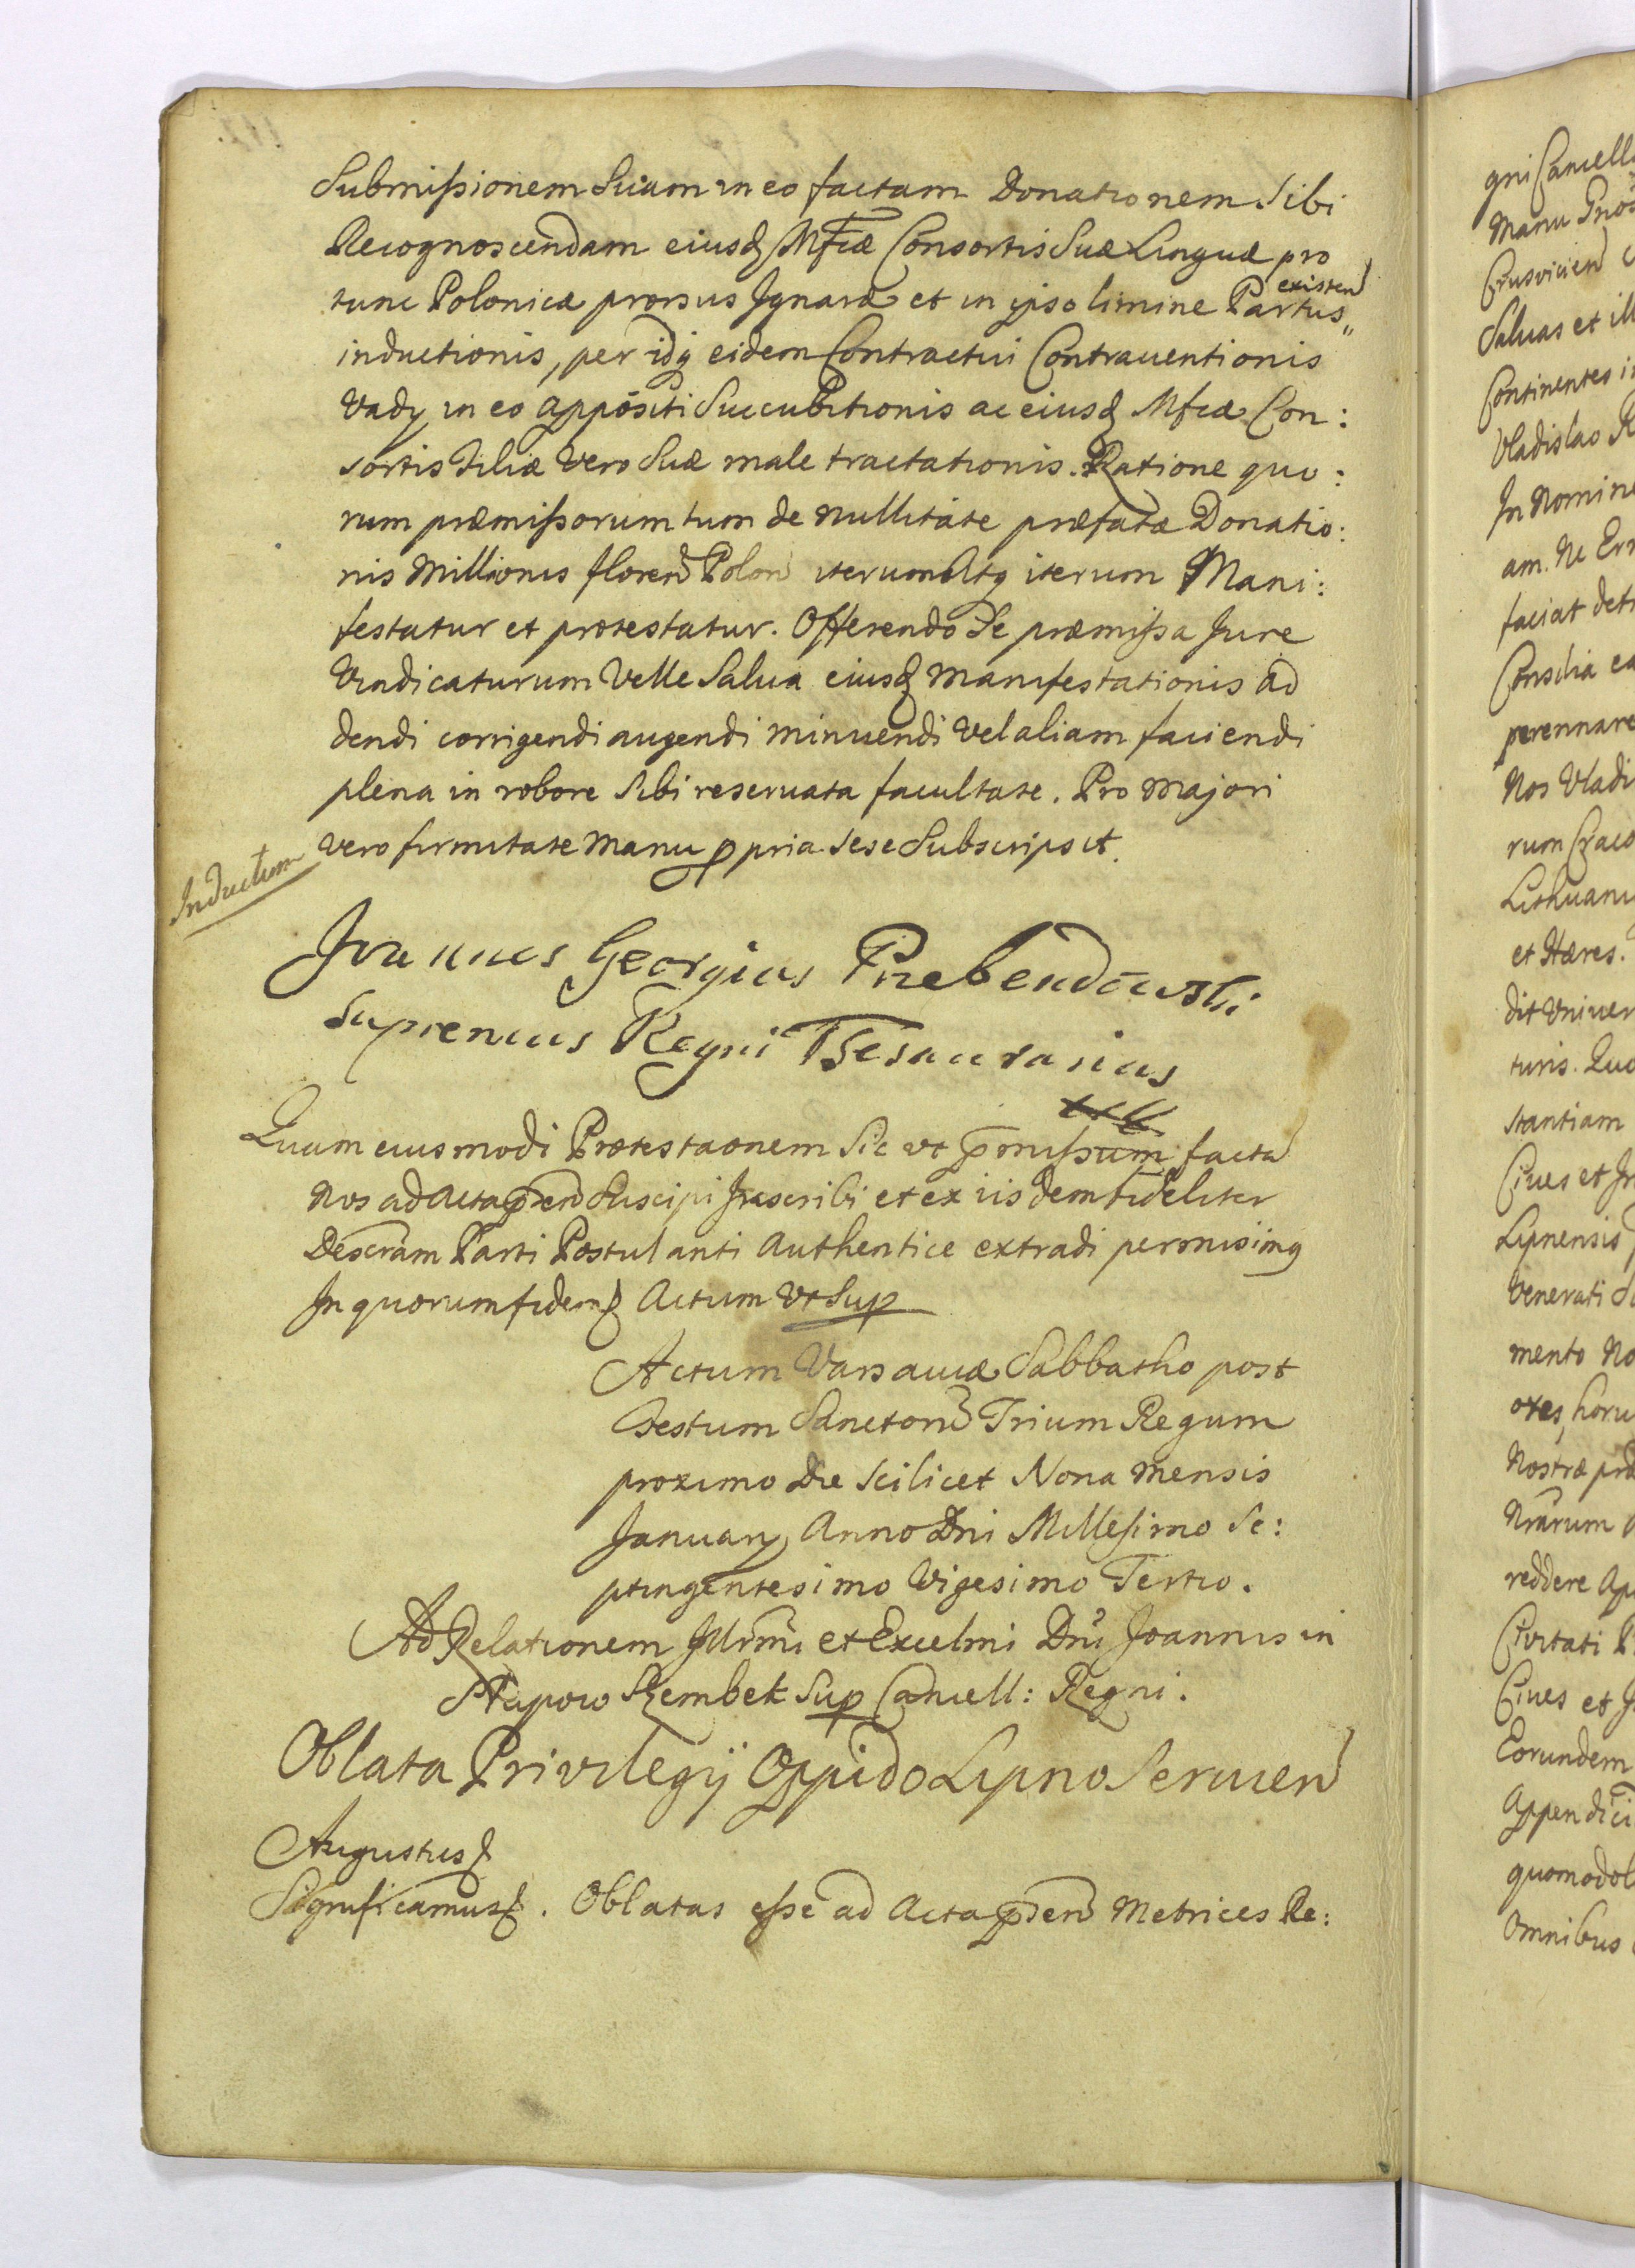 Submißionem Suam in eo factam Donationem Sibi
Recognoscendam eiusq Mfcæ Consortis Suæ Linguæ pro
tunc Polonicæ prorsus Ignaræ et in ipso limine Partus existen
inductionis, per idq eidem Contractui Contrauentionis
Vadij in eo appositi Succubitionis ac eiusq Mfcæ Con:
sortis Filiæ Vero Suæ male tractationis. Ratione quo:
rum præmißorum tum de nullitate præfatæ Donatio:
nis Millionis floren Polon iterum Atq iterum Mani:
festatur et protestatur. Offerendo Se præmißa Jure
Vindicaturum Velle Salua eiusq Manifestationis ad
dendi corrigendi augendi minuendi Vel aliam faciendi
plena in robore Sibi reseruata facultate. Pro Majori
Vero firmitate Manu ppria Sese Subscripsit.
Inductum
Joannes Georgius Przebendowski
Supremus Regni Thesaurarius
Quam eiusmodi Protestaonem Sic vt pmißum facta
Nos ad Acta pñ Suscipi Inscribi et ex iisdem fideliter
Descram Parti Postulanti Authentice extradi permisimq
In quorum fidem Actum Vt Sup
Actum Varsauiæ Sabbatho post
Festum Sanctorũ Trium Regum
proximo Die Scilicet Nona Mensis
Januarij Anno Dni Millesimo Se:
ptingentesimo Vigesimo Tertio.
Ad Relationem Illrmi et Excelmi Dni Joannis in
Słupow Szembek Sup Cancell: Regni.
Oblata Privilegij Oppido Lipno Seruien
Augustus
Significamus. Oblatas eße ad Acta pñ Metrices Re:
gni Cancell
Manu
Crusvicien
Saluas et ill
Continentes
Vladislao R
In Nomine
am. Ne Err
faciat det
Consilia ea
perennare
Nos Vladi
rum Craco
Lithuani
et Hæres.
dit Vniuer
turis. Quo
stantiam
Ciues et In
Lipnensis
Venerati
mento No
ores, horu
Nostræ præ
Nrarum
reddere
Ciuitati
Ciues et
Eorundem
Appendici
quomodol
Omnibus